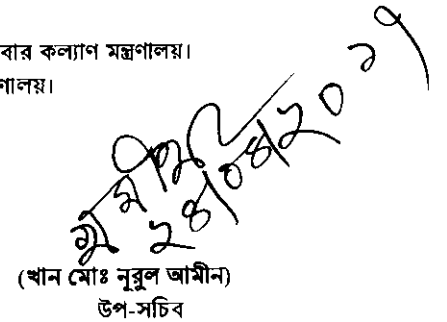 বার কল্যাণ মন্ত্রণালয়।
ণালয়।
(খান মোঃ নুরুল আমীন)
উপ-সচিব